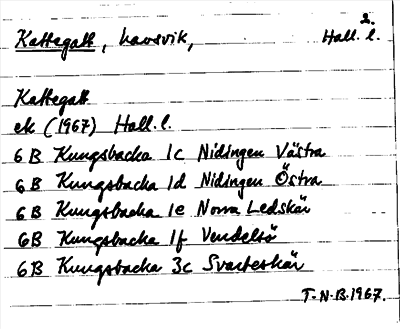 2.
Kattegatt, havsvik, Hall. l.
Kattegatt
ek (1967) Hall. l.
6B Kungsbacka 1c Nidingen Västra
6B Kungsbacka 1d Nidingen Östra
6B Kungsbacka 1e Norra Ledskär
6B Kungsbacka 1f Vendelsö
6B Kungsbacka 3c Svarteskär
T.N.B. 1967.